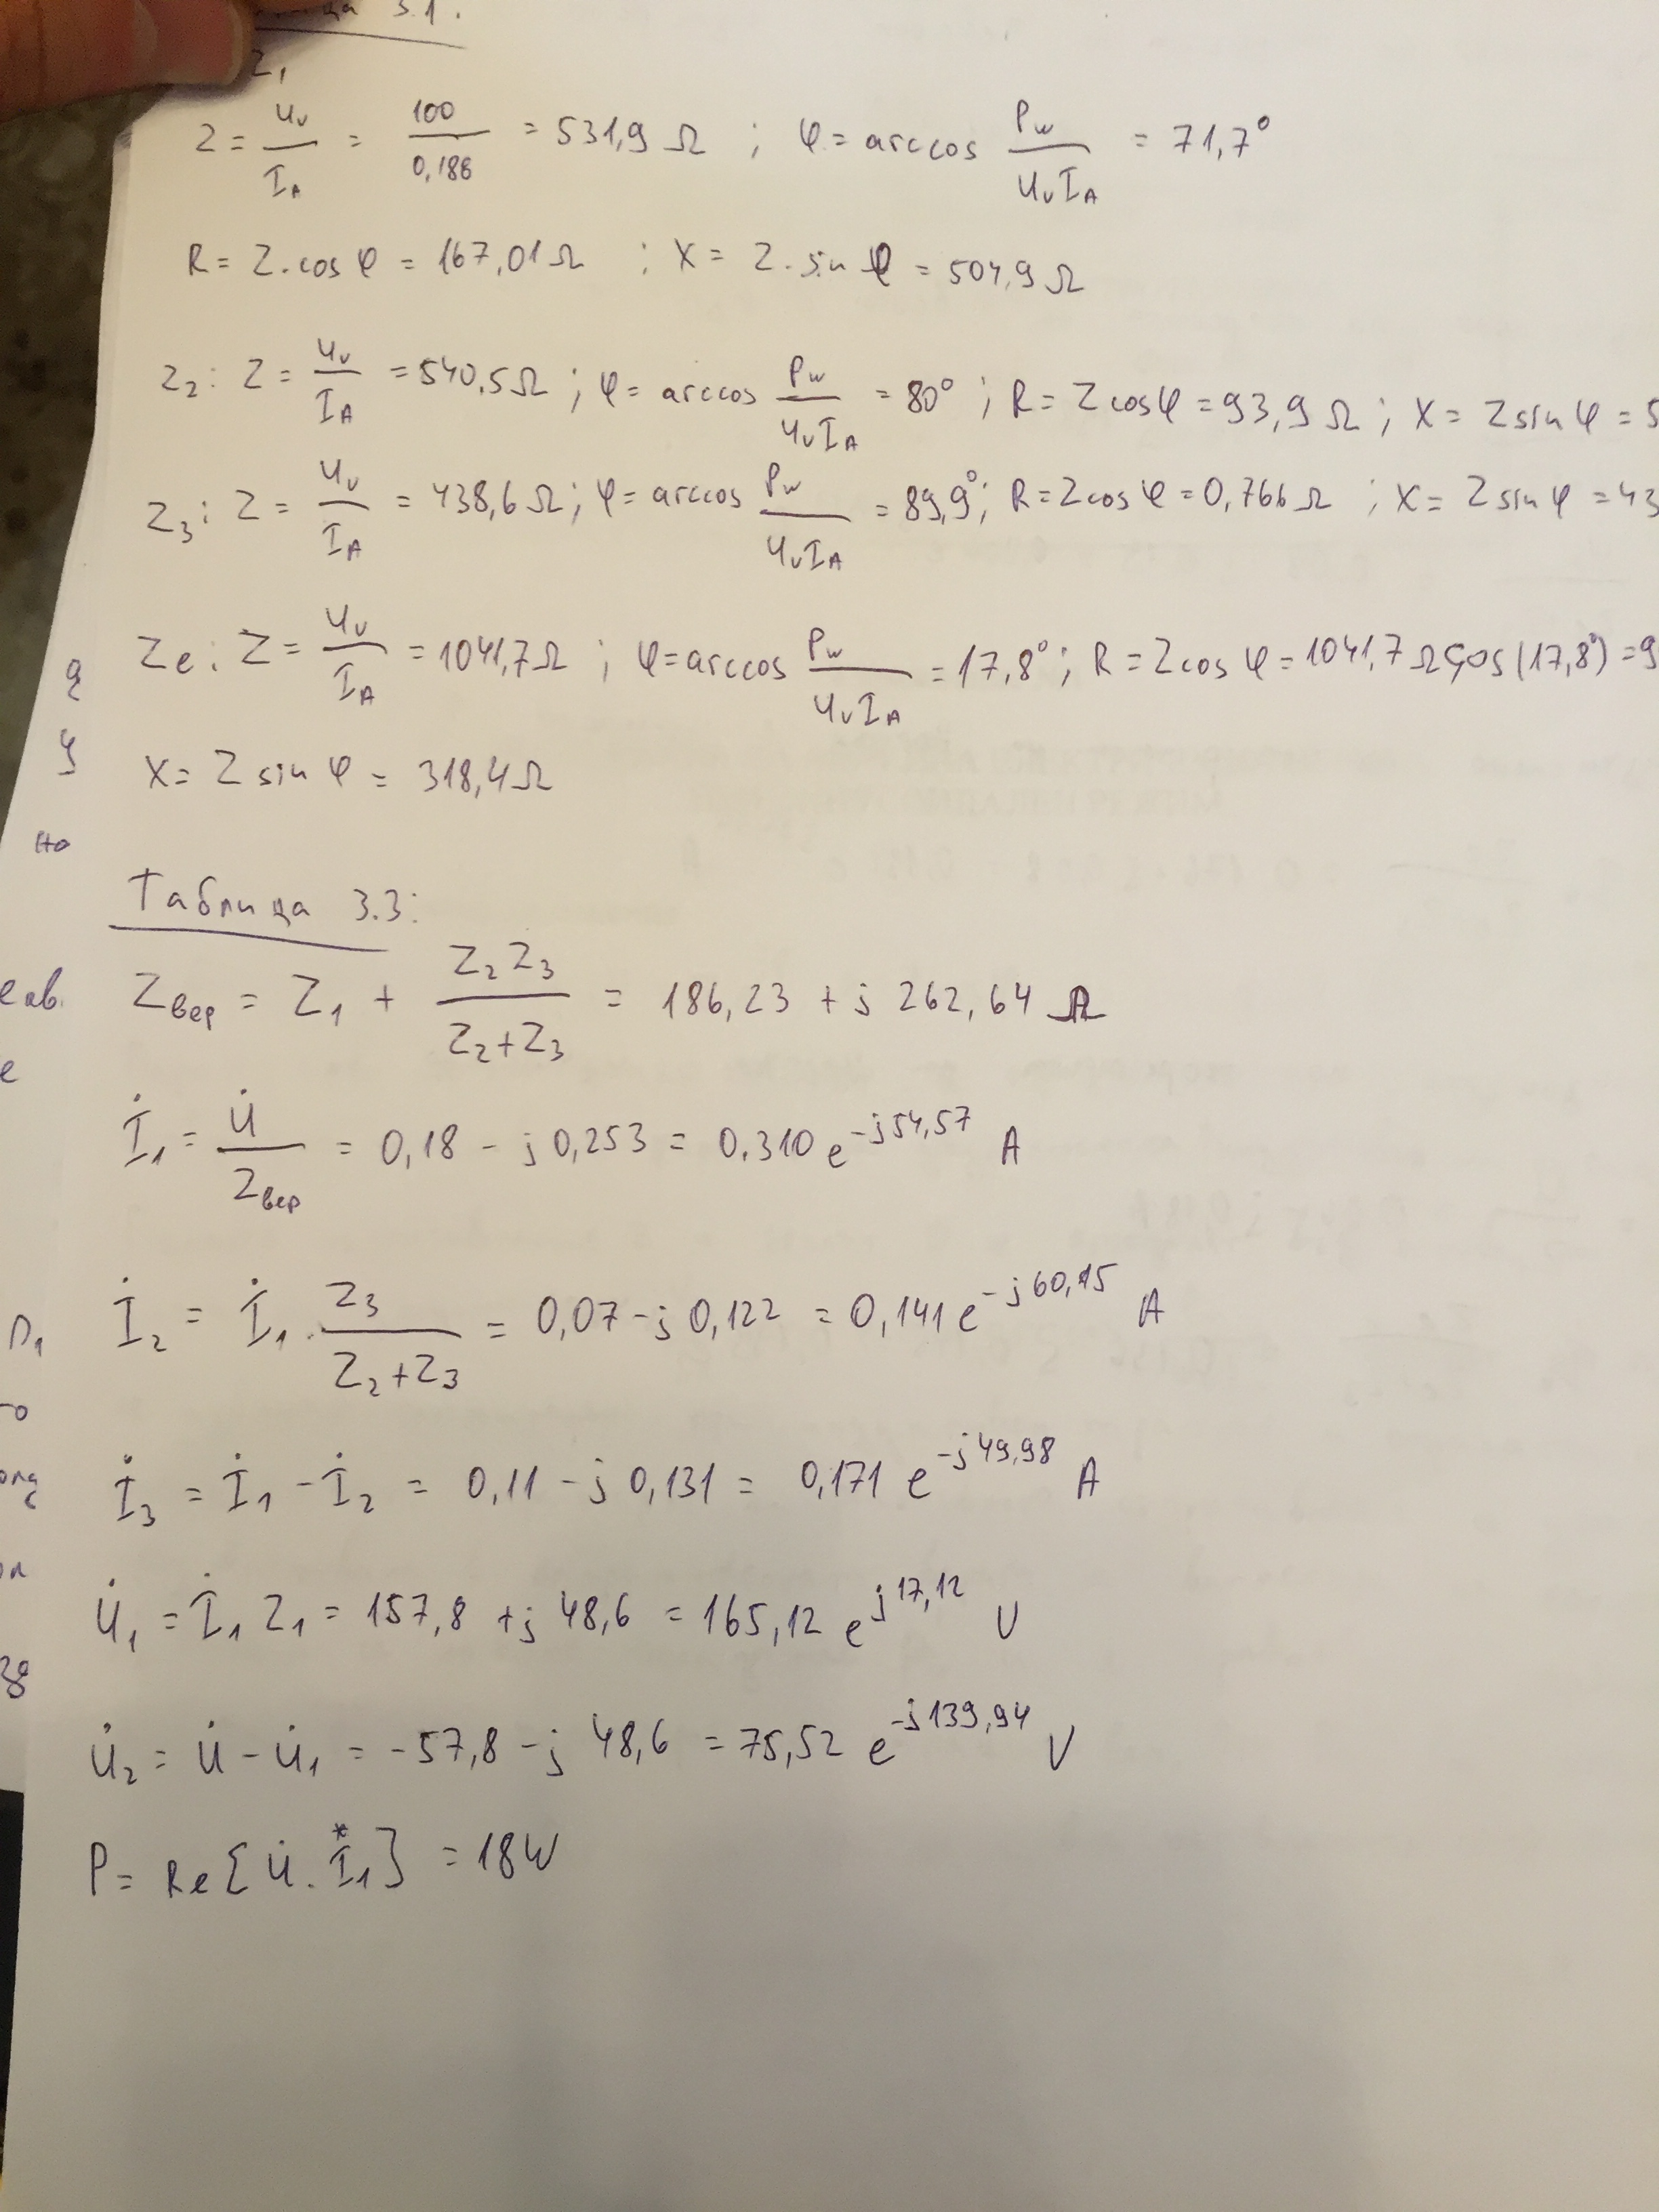 3.1.
Z₁
Z = Uᵥ / I_A = 100 / 0,188 = 531,9 Ω ; φ = arccos P_w / UᵥI_A = 71,7°
R = Z.cos φ = 167,01 Ω ; X = Z.sin φ = 504,9 Ω
Z₂: Z = Uᵥ / I_A = 540,5 Ω ; φ = arccos P_w / UᵥI_A = 80° ; R = Z cos φ = 93,9 Ω ; X = Z sin φ = 5
Z₃: Z = Uᵥ / I_A = 438,6 Ω ; φ = arccos P_w / UᵥI_A = 89,9° ; R = Z cos φ = 0,766 Ω ; X = Z sin φ = 43
Ze: Z = Uᵥ / I_A = 1041,7 Ω ; φ = arccos P_w / UᵥI_A = 17,8° ; R = Z cos φ = 1041,7 Ω cos(17,8°) = 9
X = Z sin φ = 318,4 Ω
но
Таблица 3.3:
Zвер = Z₁ + Z₂Z₃ / Z₂+Z₃ = 186,23 + j 262,64 Ω
İ₁ = U̇ / Zвер = 0,18 - j 0,253 = 0.310 e^-j54,57 A
İ₂ = İ₁ . Z₃ / Z₂+Z₃ = 0,07 - j 0,122 = 0,141 e^-j60,15 A
İ₃ = İ₁ - İ₂ = 0,11 - j 0,131 = 0,171 e^-j49,98 A
U̇₁ = İ₁ Z₁ = 157,8 + j 48,6 = 165,12 e^j17,12 V
U̇₂ = U̇ - U̇₁ = -57,8 - j 48,6 = 75,52 e^-j139,94 V
P = Re{U̇. I₁*} = 18W